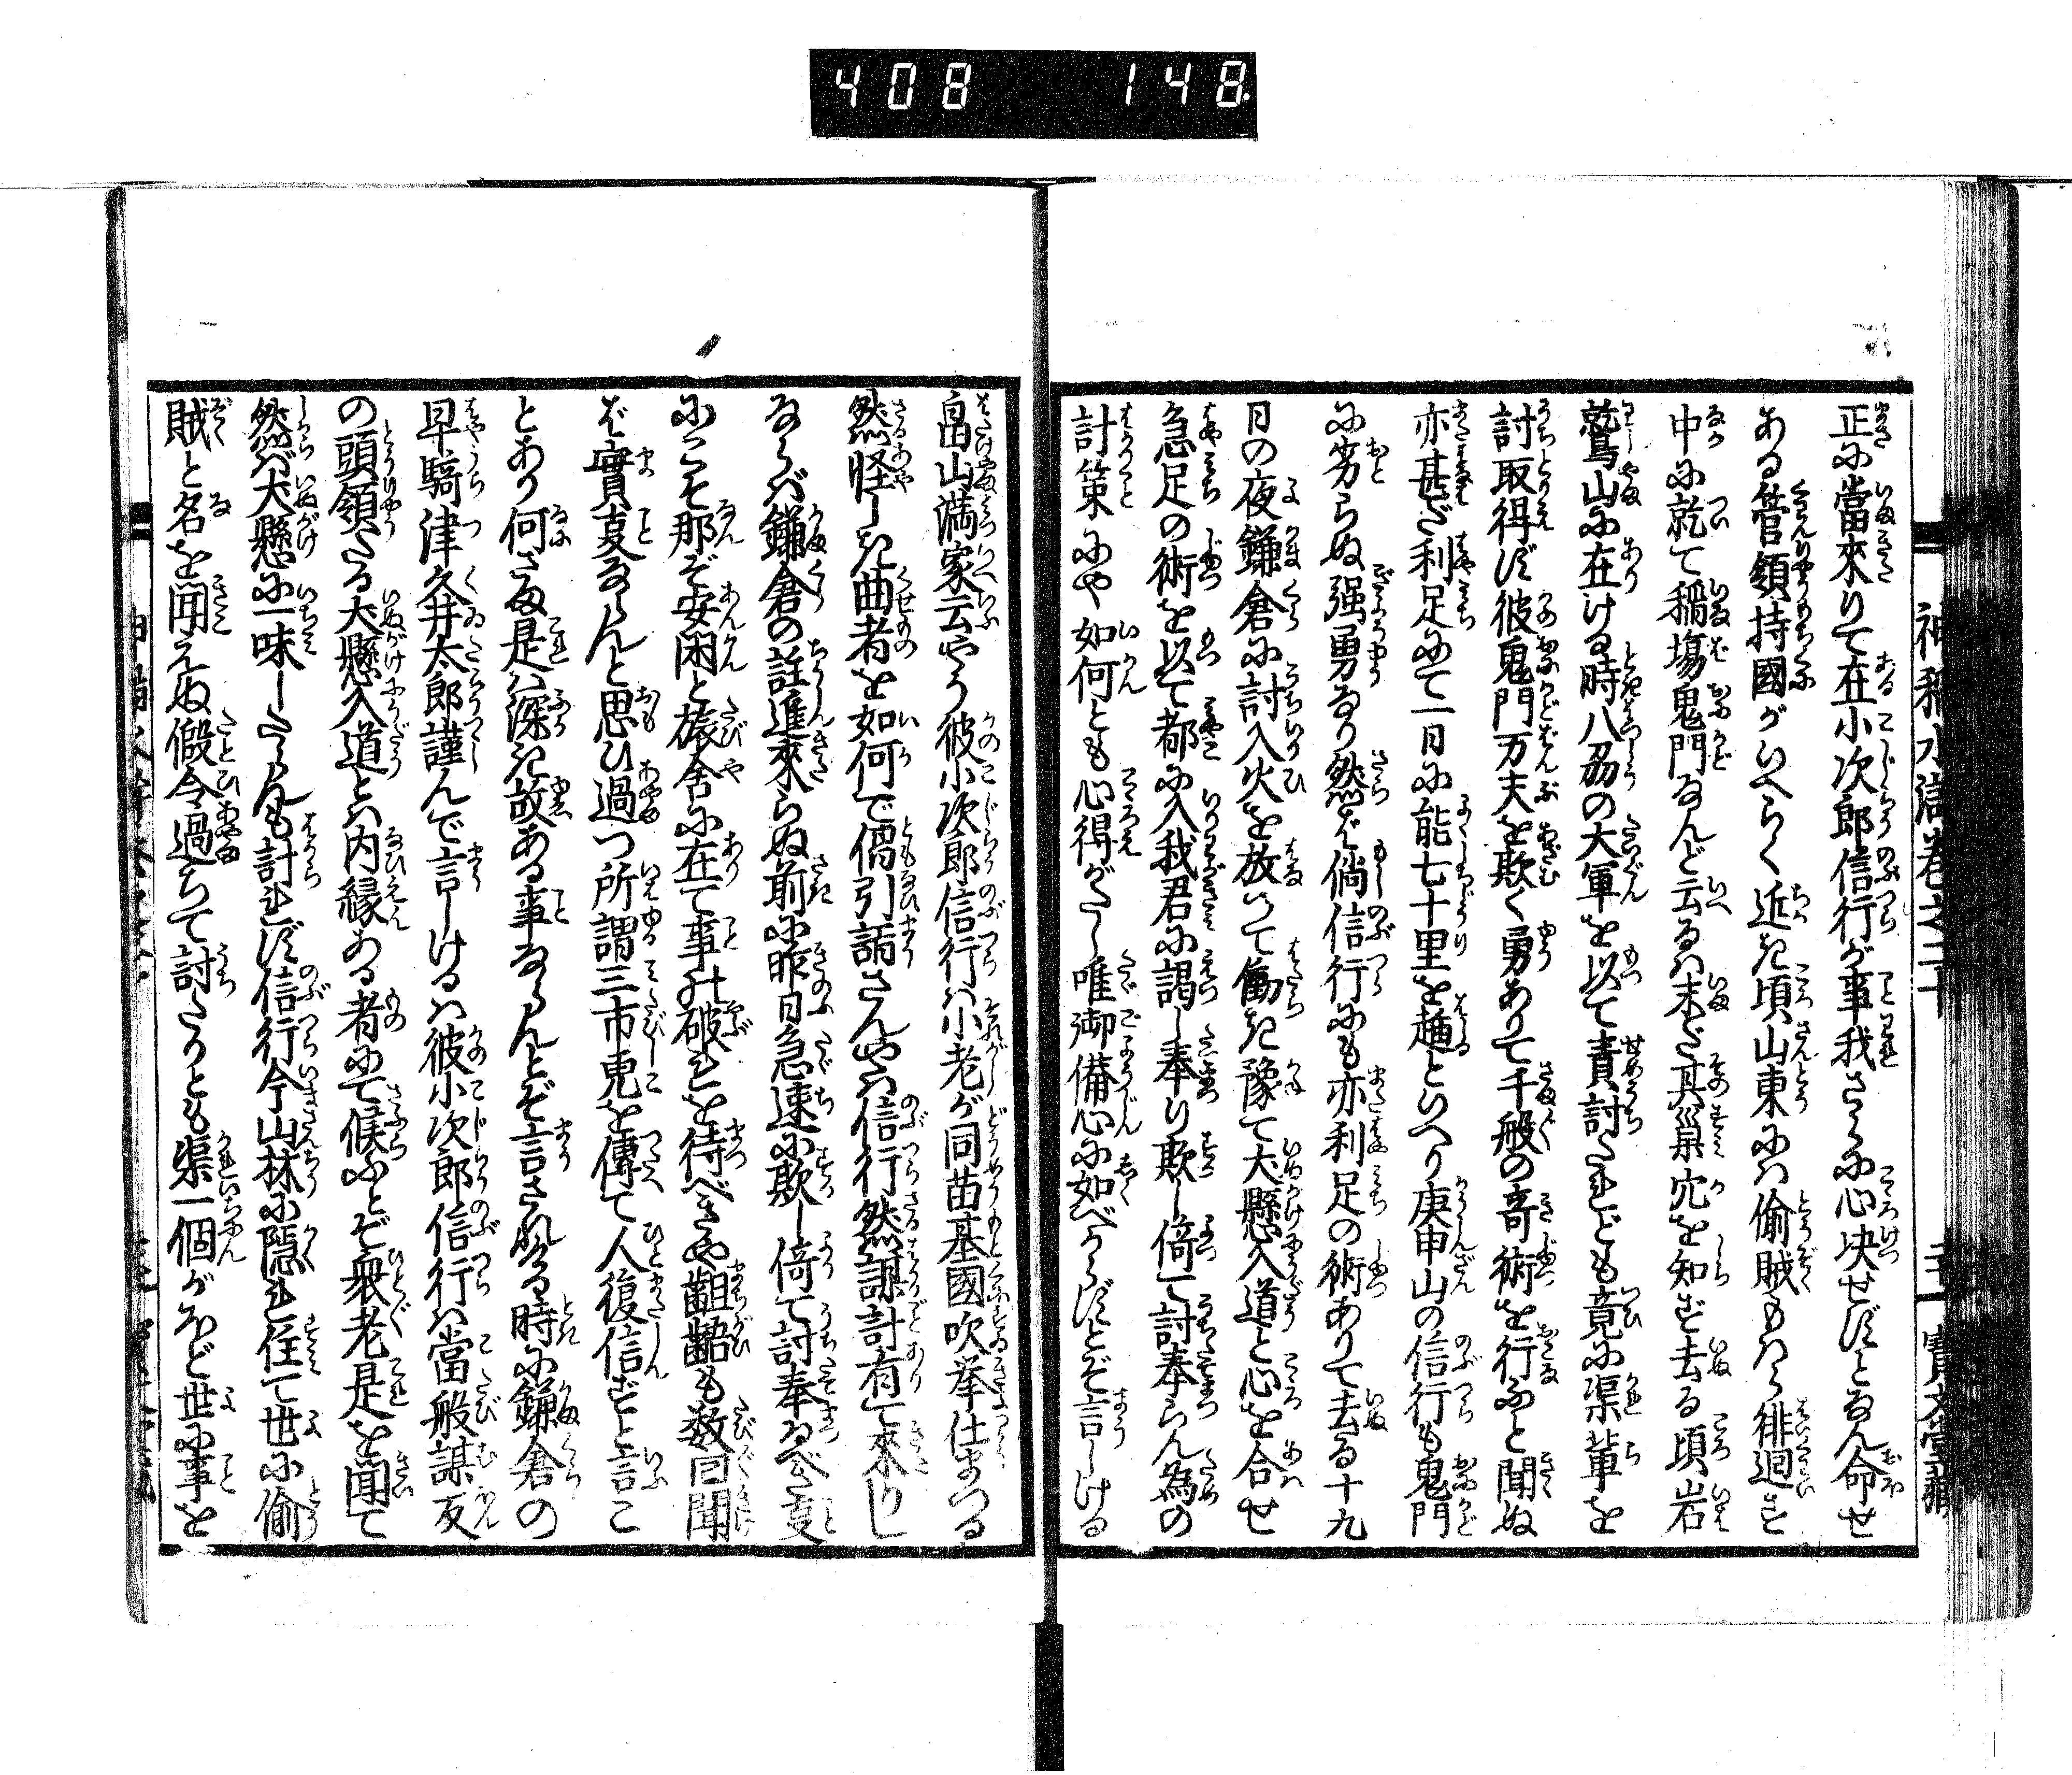 408 148
正に當來りて在小次郎信行が事我さらに心决せずとなん命せ
ある管領持國がいへらく近き頃山東にハ偷賊もハら徘徊す
中に就て稱塲鬼門なんど云るハ未だ其巢穴を知ず去る頃岩
鷲山に在ける時八刕の大軍を以て責討たれども竟に渠輩を
討取得ず彼鬼門万夫を欺く勇ありて千般の奇術を行ふと聞ぬ
亦甚だ利足にて一日に能七十里を趨といへり庚申山の信行も鬼門
に劣らぬ强勇なり然ば倘信行にも亦利足の術ありて去る十九
日の夜鎌倉に討入火を放って働き豫て犬懸入道と心を合せ
急足の術を以て都に入我君に謁し奉り欺し倚て討奉らん為の
計策にや如何とも心得がたし唯御備心に如べからずとぞ言しける
畠山満家云やう彼小次郎信行ハ小老が同苗基國吹挙仕まつる
然怪しき曲者を如何で偶引謟さんや乃信行然謀計有て來りし
ならバ鎌倉の註進來らぬ前に昨日急速に欺し倚て討奉るべき叓
にこそ那ぞ安閑と旅舍に在て事の破れを待べきや齟齬も数回聞
ば實叓ならんと思ひ過つ所謂三市虎を傳て人復信ずと言こ
とあり何さま是ハ深き故ある事ならんとぞ言されける時に鎌倉の
早騎津久井太郎謹んで言しけるハ彼小次郎信行ハ當般謀反
の頭領たる犬懸入道とハ内縁ある者にて候ふとぞ衆老是を聞て
然バ犬懸に一味したらんも計れず信行今山林に隱れ住て世に偷
賊と名を聞えぬ假令過ちて討たりとも渠一個がほど世に事を